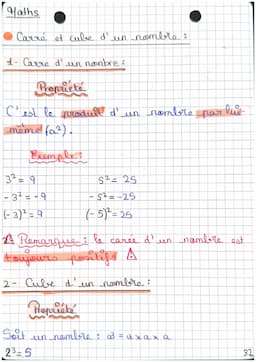 Maths
Carré et cube d'un nombre :
1- Carré d'un nombre :
Propriété
C'est le produit d'un nombre par lui-
même (a²).
Exemple :
3² = 9 5² = 25
- 3² = - 9 - 5² = - 25
(- 3)² = 9 (- 5)² = 25
Remarque : le carré d'un nombre est
toujours positif
2- Cube d'un nombre :
Propriété
Soit un nombre : a³ = a x a x a
2³ = 5